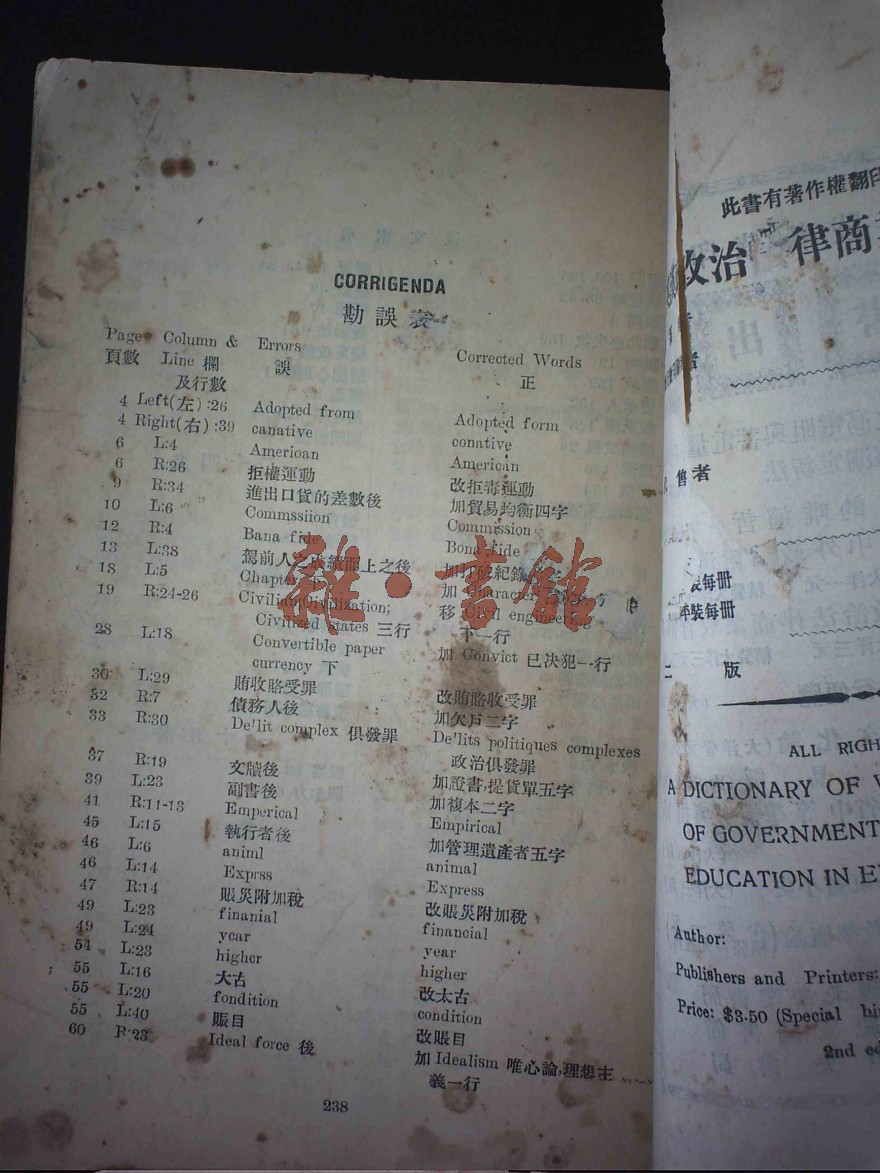 CORRIGENDA
勘誤表
Page Column & Errors Corrected Words
頁數 Line 欄 誤 正
及行數
4 Left(左):26 Adopted from Adopted form
4 Right(右):39 canative conative
6 L:4 Amerioan American
6 R:26 拒權運動 改拒毒運動
9 R:34 進出口貨的差數後 加貿易均衡四字
10 L:6 Commssiion Commission
12 R:4 Bana fide Bona fide
13 L:38 駕前人之成績而上之後 加打破紀錄
18 L:5 Chapter 下 加 Character
19 R:24-26 Civilian;Civilization; 移 Civil engineering
Civilized states 三行 下一行
28 L:18 Convertible paper
currency 下 加 Convict 已決犯一行
30 L:29 賄收賂受罪 改賄賂收受罪
32 R:7 債務人後 加欠戶二字
33 R:30 De'lit complex 俱發罪 De'lits politiques complexes
政治俱發罪
37 R:19 文牘後 加證書,提貨單五字
39 L:23 副書後 加複本二字
41 R:11-13 Emperical Empirical
45 L:15 執行者後 加管理遺產者五字
46 L:6 animl animal
46 L:14 Exprss Express
47 R:14 賬災附加稅 改賑災附加稅
49 L:23 finanial financial
49 L:24 ycar year
54 L:23 highcr higher
55 L:16 大古 改太古
55 L:20 fondition condition
55 L:40 賑目 改賬目
60 R:23 Ideal force 後 加 Idealism 唯心論,理想主
義一行
238
雜·書館
此書有著作權翻印
政治 律商
出
售者
裝每冊
裝每冊
版
ALL RIGH
A DICTIONARY OF
OF GOVERNMENT
EDUCATION IN E
Author:
Publishers and Printers:
Price: $3.50 (Special bi
2nd ed